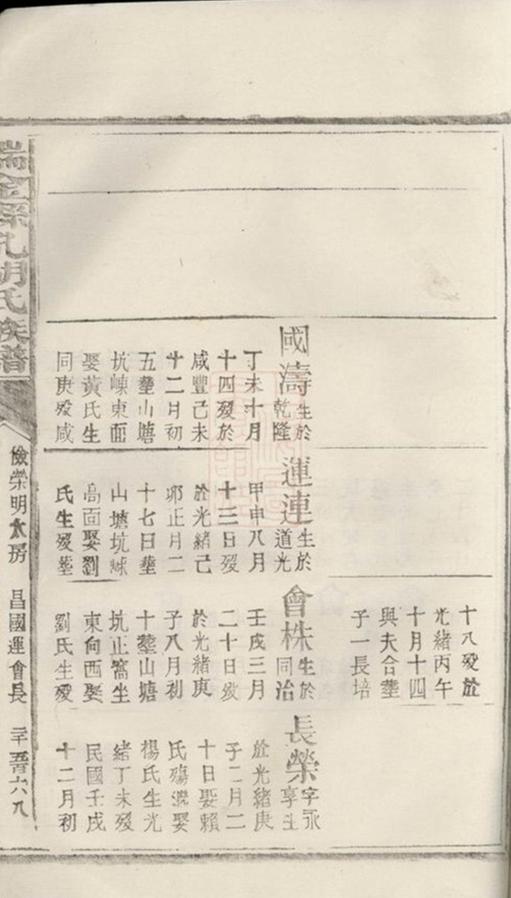 十八殁於
光緒丙午
十月十四
與夫合塟
子一長培
國濤生於
乾隆
丁未十月
十四殁於
咸豐己未
十二月初
五塟山塘
坑崠東面
娶黃氏生
同庚殁咸
運連生於
道光
甲申八月
十三日殁
於光緒己
卯正月二
十七日塟
山塘坑崠
高面娶劉
氏生殁塟
會株生於
同治
壬戌三月
二十日殁
於光緒庚
子八月初
十塟山塘
坑正窩坐
東向西娶
劉氏生殁
長榮字永
享生
於光緒庚
子二月二
十日娶賴
氏殤混娶
楊氏生光
緒丁未殁
民國壬戌
十二月初
瑞金 胡氏族譜
儉榮明大房
昌國運會長